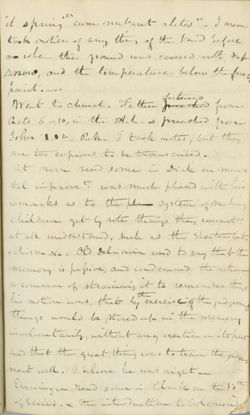 it spring "cum
took notice of any thing of the kind before
when the ground was covered with
snow, and the temperature below the freez
point. —
Went to church. lectured from
Acts 6-10, in the A.M. & preached from
John 1.02. P.M. I took notes, but they
are too copious to be transcribed.
read some in Dick on men
tal improvt. was much pleased with his
remarks as to the system of making
children get by rote things they cannot
at all understand, such as the Shorter Cat
echism &c. used to say that the
memory is passive, and condemned the notion
so common of straining it to remember things
his notion was, that by the exercise of the judgment
things would be stored up in the memory
involuntarily, without any exertion on its part
and that the great thing was to train the judg
ment well. I believe he was right —
Evening — read some in Clark on the 12th
of Eccles. & the introduction to Solomon's